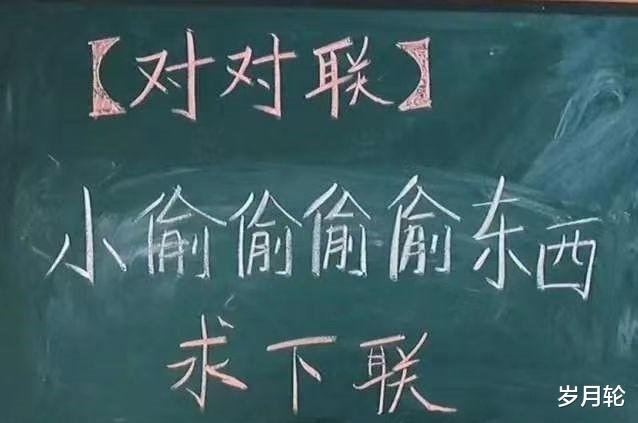 【对对联】
小偷偷偷偷东西
求下联
岁月轮